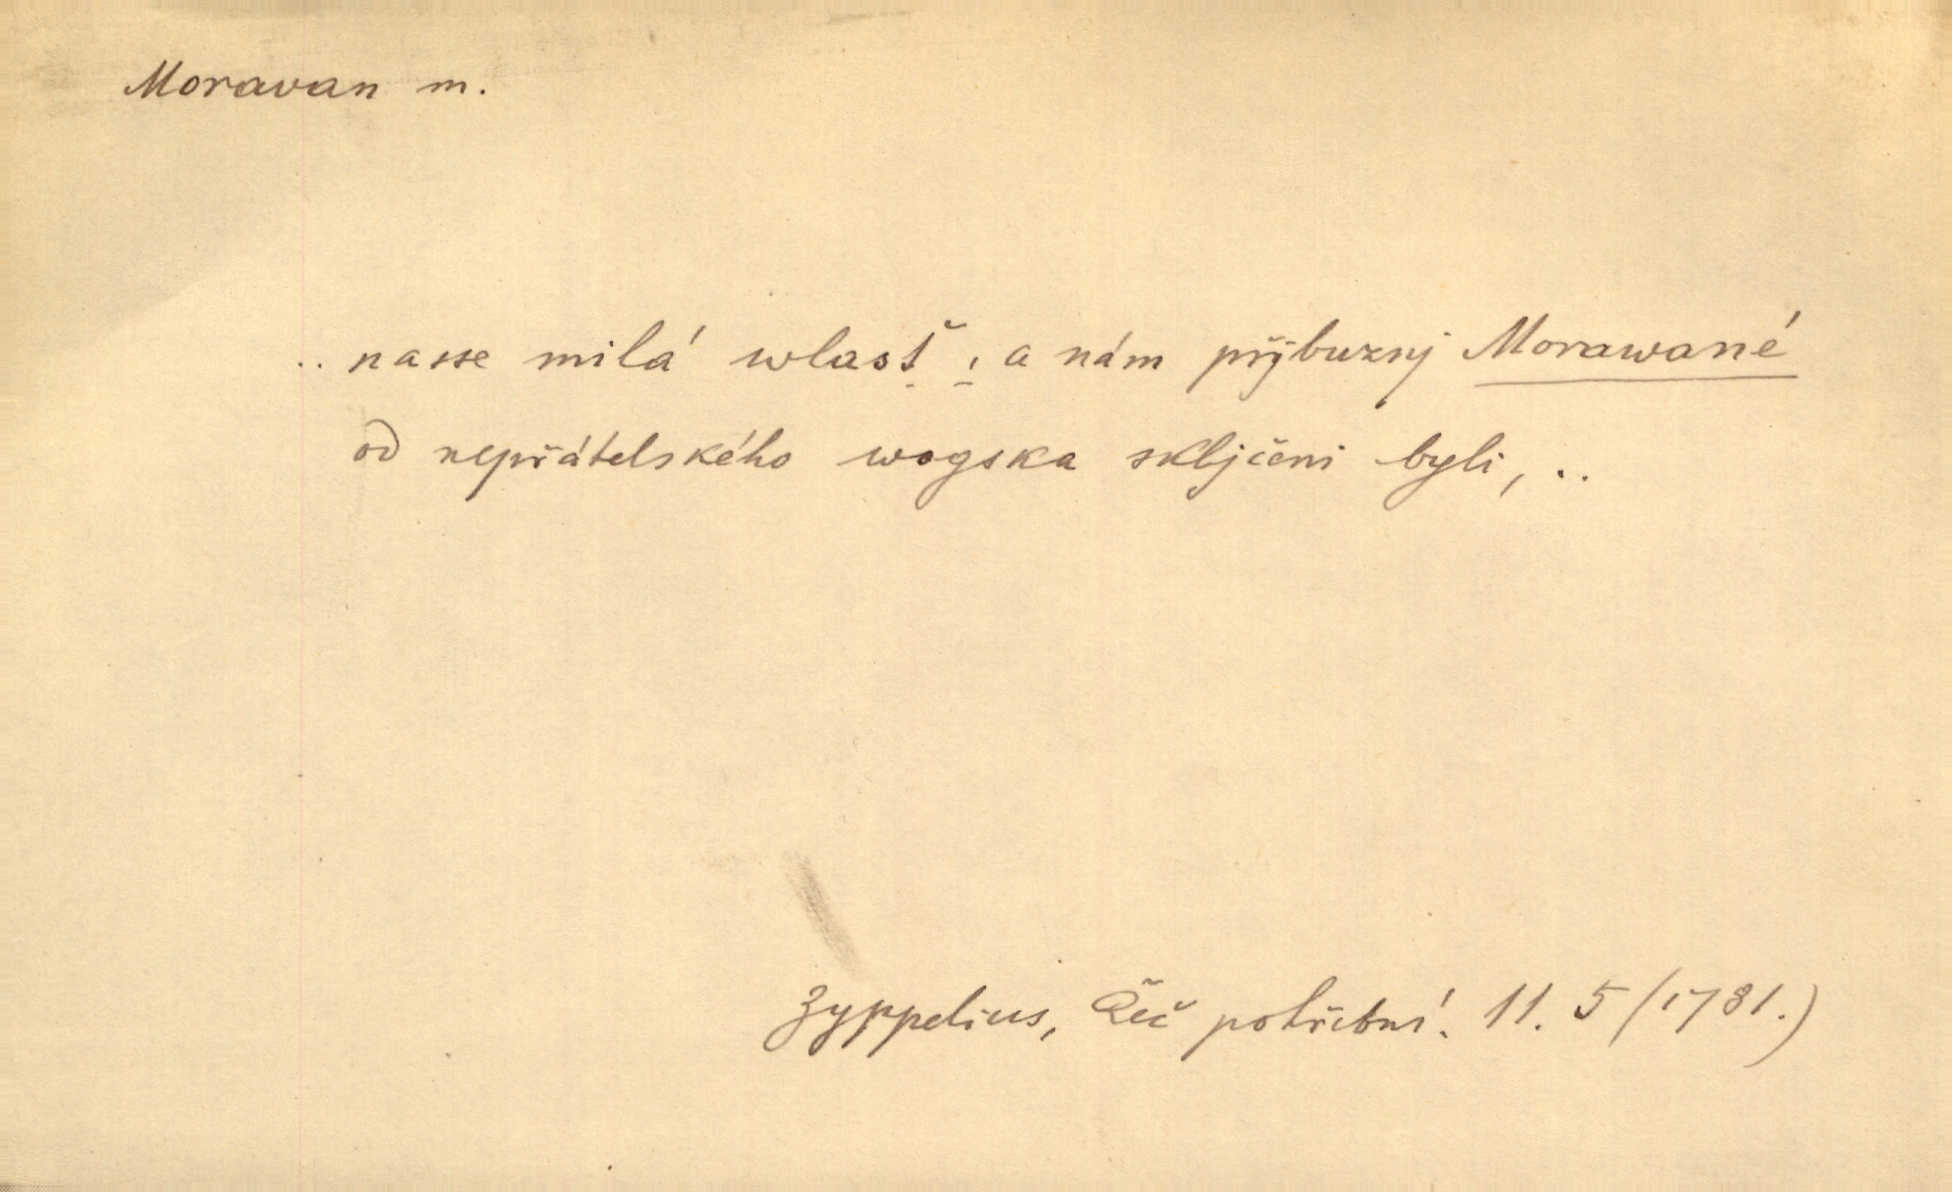 Moravan m.
.. nasse milá wlast̆ , a nám přjbuznj Morawané
od nepřátelského wogska skljčeni byli, ..
Zyppelius, Řeč potřební. 11. 5 (1781.)